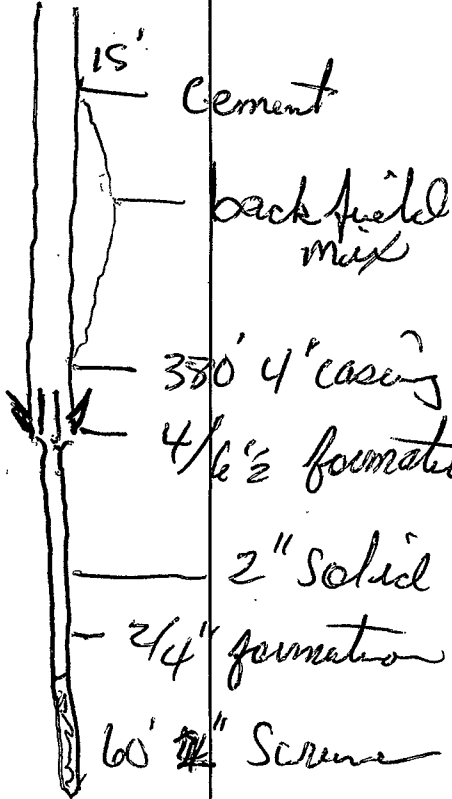 15'
Cement
backfield
mix
380' 4" casing
4/6 1/2 formation
2" Solid
2/4" formation
60' " Screne